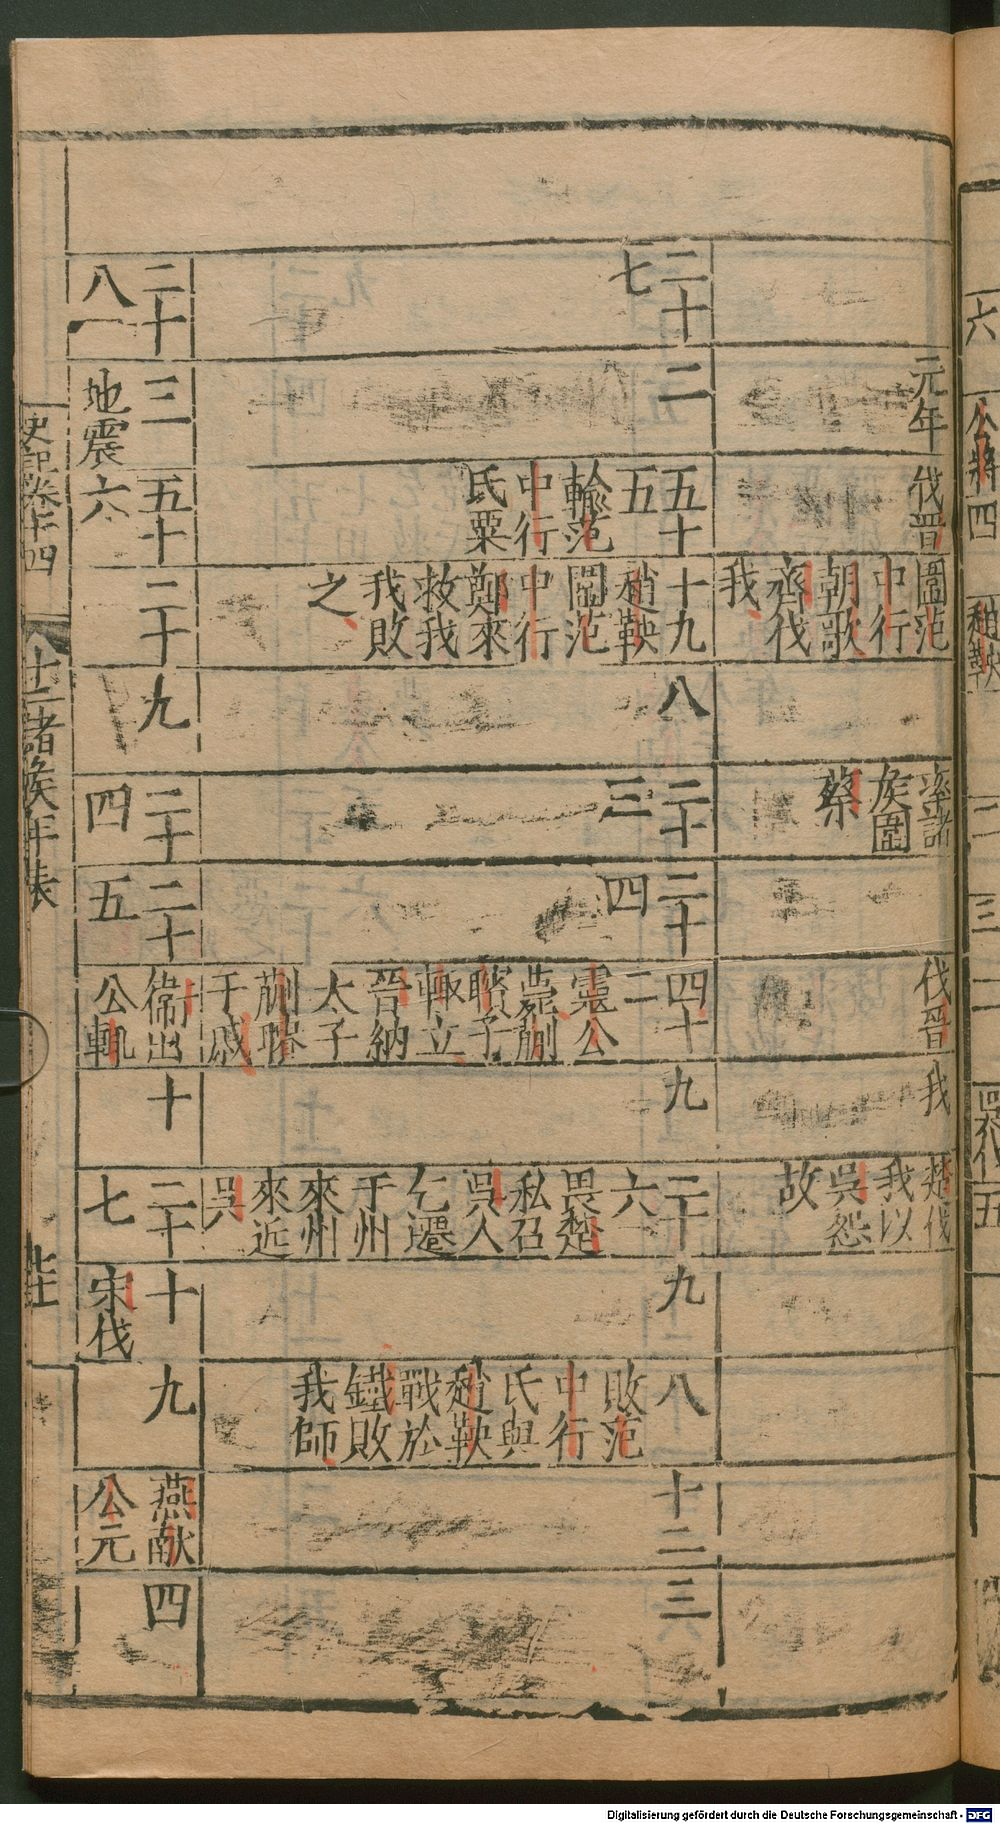 元年
伐晉
圍范
中行
朝歌
齊伐
我
率諸
侯圍
蔡
伐晉
我
楚伐
我以
吳怨
故
二十
七
二
五十
五
輸范
中行
氏粟
十九
趙鞅
圍范
中行
鄭來
救我
我敗
之
八
二十
三
二十
四
四十
二
靈公
薨蒯
聵子
輒立
晉納
太子
蒯聵
于戚
九
二十
六
畏楚
私召
吳人
乞遷
于州
來州
來近
吳
九
八
敗范
中行
氏與
趙鞅
戰於
鐵敗
我師
十二
三
二十
八
三
地震
五十
六
二十
九
二十
四
二十
五
衛出
公輒
十
二十
七
十
宋伐
九
燕献
公元
四
史記卷十四
十二諸侯年表
Digitalisierung gefördert durch die Deutsche Forschungsgemeinschaft - DFG